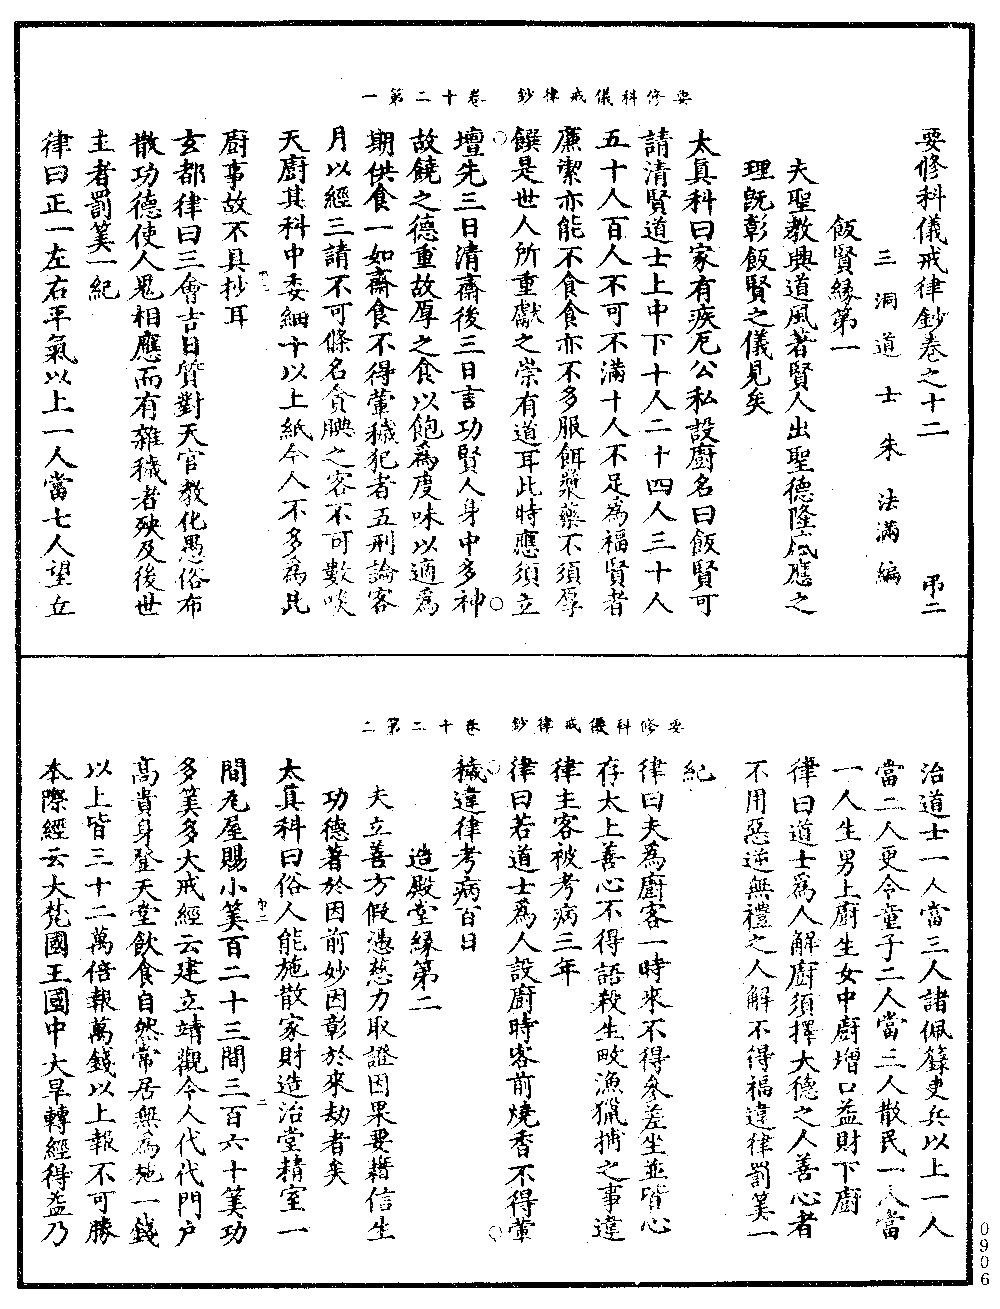 要修科儀戒律鈔　卷十二第一
要修科儀戒律鈔卷之十二　弔二
三洞道士朱法滿編
飯賢緣第一
夫聖教興道風著賢人出聖德隆感應之
理旣彰飯賢之儀見矣
太真科曰家有疾厄公私設廚名曰飯賢可
請清賢道士上中下十人二十四人三十人
五十人百人不可不滿十人不足為福賢者
廉潔亦能不食食亦不多服餌漿藥不須厚
饌是世人所重獻之崇有道耳此時應須立
壇先三日清齋後三日言功賢人身中多神
故饒之德重故厚之食以飽為度味以適為
期供食一如齋食不得葷穢犯者五刑論客
月以經三請不可條名貪腆之客不可數啖
天廚其科中委細十以上紙今人不多為凡
廚事故不具抄耳
玄都律曰三會吉日質對天官教化愚俗布
散功德使人鬼相應而有雜穢者殃及後世
主者罰筭一紀
律曰正一左右平氣以上一人當七人望立
要修科儀戒律鈔　卷十二第二
治道士一人當三人諸佩籙吏兵以上一人
當二人更令童子二人當二人散民一人當
一人生男上廚生女中廚增口益財下廚
律曰道士為人解廚須擇大德之人善心者
不用惡逆無禮之人解不得福違律罰筭一
紀
律曰夫為廚客一時來不得參差坐並皆心
存太上善心不得語殺生畋漁獵捕之事違
律主客被考病三年
律曰若道士為人設廚時客前燒香不得葷
穢違律考病百日
造殿堂緣第二
夫立善方假憑慈力取證因果要藉信生
功德著於因前妙因彰於來劫者矣
太真科曰俗人能施散家財造治堂精室一
間瓦屋賜小筭百二十三間三百六十筭功
多筭多大戒經云建立靖觀令人代代門戶
高貴身登天堂飲食自然常居無為地一錢
以上皆三十二萬倍報萬錢以上報不可勝
本際經云大梵國王國中大旱轉經得益乃
0906